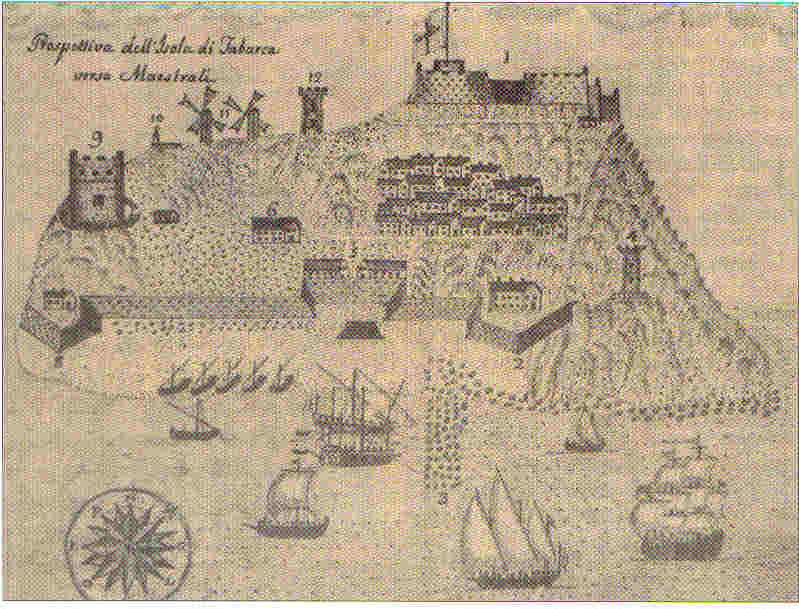 Prospettiva dell'Isola di Tabarca
verso Maestrali
1
12
11
10
9
6
5
4
2
3
8